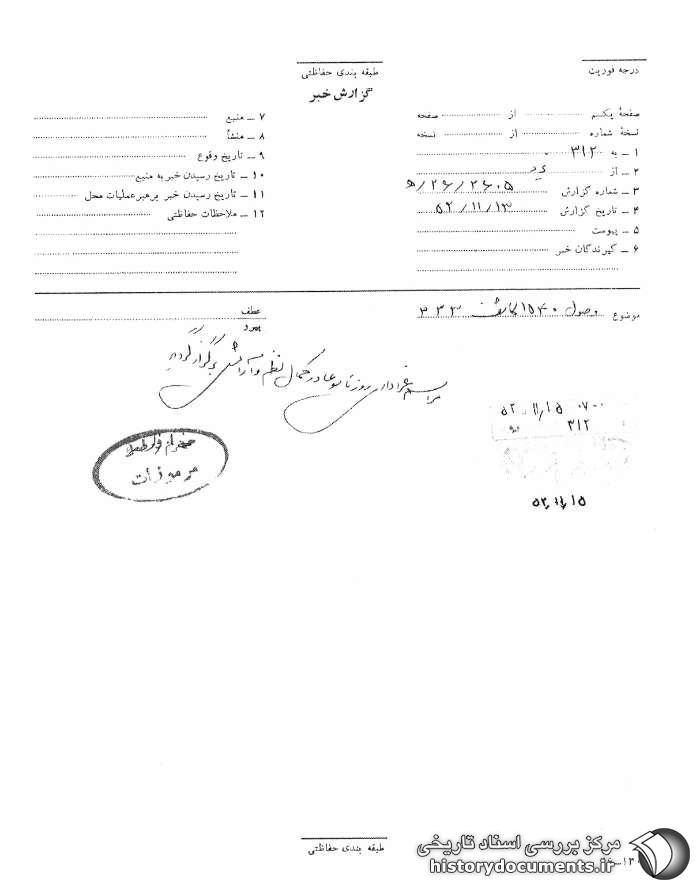 درجه فوریت
طبقه بندی حفاظتی
گزارش خبر
صفحهٔ یکم از صفحه
نسخهٔ شماره از نسخه
۱ ــ به ۳۱۲
۲ ــ از
۳ ــ شماره گزارش
۴ ــ تاریخ گزارش ۵۲/۱۱/۱۳
۵ ــ پیوست
۶ ــ گیرندگان خبر
۷ ــ منبع
۸ ــ منشأ
۹ ــ تاریخ وقوع
۱۰ ــ تاریخ رسیدن خبر به منبع
۱۱ ــ تاریخ رسیدن خبر برهبر عملیات محل
۱۲ ــ ملاحظات حفاظتی
موضوع وصول ۱۵۴۰ ۳۳۳
عطف
پیرو
مراسم عزاداری روز تاسوعا در کمال نظم و آرامش برگزار گردید
۵۲/۱۱/۱۵ ۰۷۰۰
۳۱۲
مرموزات
۵۲/۱۱/۱۵
طبقه بندی حفاظتی
مرکز بررسی اسناد تاریخی
historydocuments.ir